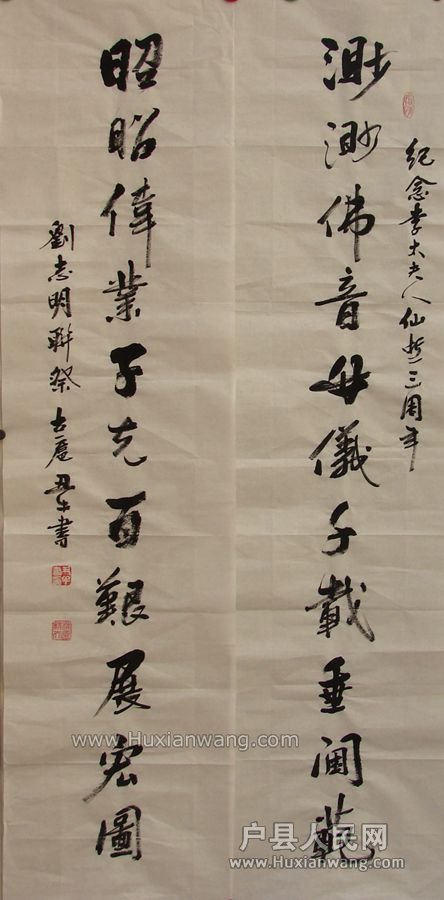 紀念李太夫人仙逝三周年
渺渺佛音母儀千載垂閫範
昭昭偉業子克百艱展宏圖
劉志明聯祭 古扈丑牛書
www.Huxianwang.com
户县人民网
www.Huxianwang.com